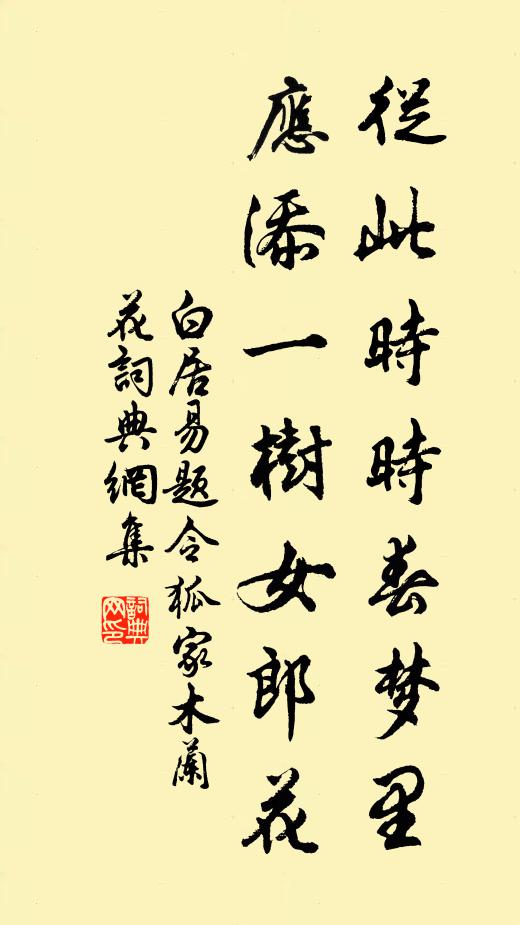 從此時時春梦里
應添一樹女郎花
白居易题令狐家木蘭
花詞典網集
詞典网印